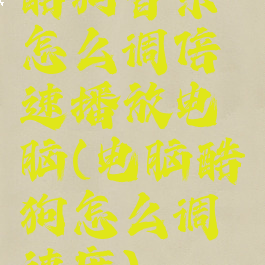 酷狗音乐
怎么调倍
速播放电
脑(电脑酷
狗怎么调
速度)